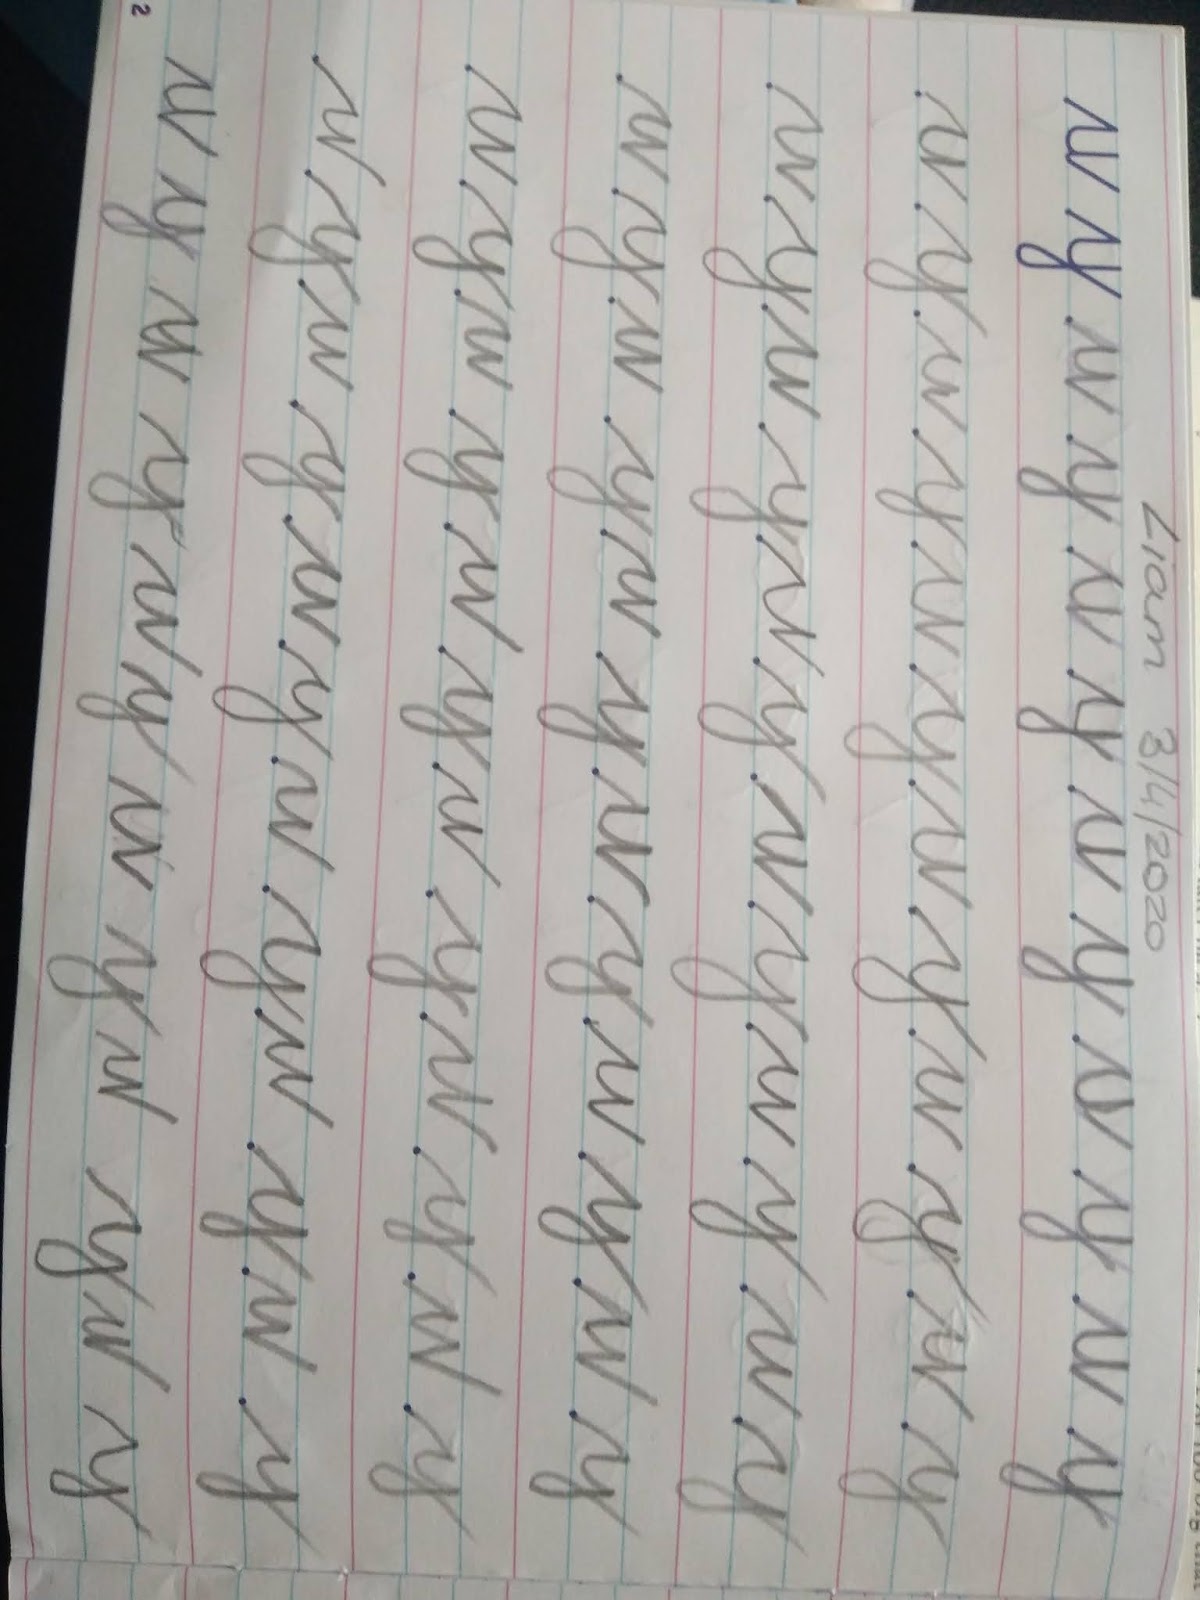 Liam 3/4/2020
w y w y w y w y w y w y
w y w y w y w y w y w y
w y w y w y w y w y w y
w y w y w y w y w y w y
w y w y w y w y w y w y
w y w y w y w y w y w y
w y w y w y w y w y w y
2